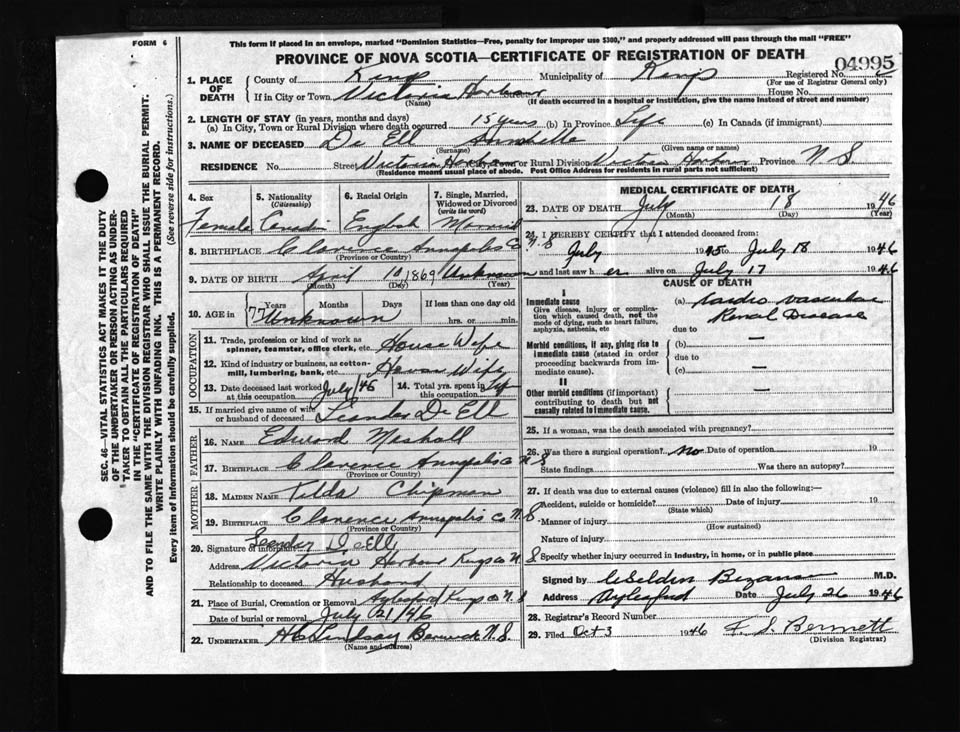 FORM 6
This form if placed in an envelope, marked "Dominion Statistics—Free, penalty for improper use $300," and properly addressed will pass through the mail "FREE"
PROVINCE OF NOVA SCOTIA—CERTIFICATE OF REGISTRATION OF DEATH
04995
1. PLACE OF DEATH
County of Kings Municipality of Kings Registered No.
(For use of Registrar General only)
If in City or Town Victoria Harbour Street House No.
(Name) (If death occurred in a hospital or institution, give the name instead of street and number)
2. LENGTH OF STAY (in years, months and days)
(a) In City, Town or Rural Division where death occurred 15 years (b) In Province Life (c) In Canada (if immigrant)
3. NAME OF DECEASED De Ell Annabella
(Surname) (Given name or names)
RESIDENCE No. Street Victoria Harbour City, Town or Rural Division Victoria Harbour Province N S
(Residence means usual place of abode. Post Office Address for residents in rural parts not sufficient)
4. Sex 5. Nationality (Citizenship) 6. Racial Origin 7. Single, Married, Widowed or Divorced (write the word)
Female English Married
8. BIRTHPLACE Clarence Annapolis Co N.S
(Province or Country)
9. DATE OF BIRTH April 10 1869 Unknown
(Month) (Day) (Year)
10. AGE in 77 Years Months Days If less than one day old
Unknown hrs. or min.
OCCUPATION
11. Trade, profession or kind of work as spinner, teamster, office clerk, etc. House Wife
12. Kind of industry or business, as cotton-mill, lumbering, bank, etc. House Wife
13. Date deceased last worked at this occupation July 46 14. Total yrs. spent in this occupation Life
15. If married give name of wife or husband of deceased Leander De Ell
FATHER
16. NAME Edward Mashall
17. BIRTHPLACE Clarence Annapolis Co N S
(Province or Country)
MOTHER
18. MAIDEN NAME Chipman
19. BIRTHPLACE Clarence Annapolis Co N S
(Province or Country)
20. Signature of informant Leander D. Ell
Address Victoria Harbour Kings co N S
Relationship to deceased Husband
21. Place of Burial, Cremation or Removal Aylesford Kings Co N S
Date of burial or removal July 21/46
22. UNDERTAKER Lindsay Berwick N.S.
(Name and address)
MEDICAL CERTIFICATE OF DEATH
23. DATE OF DEATH July 18 1946
(Month) (Day) (Year)
24. I HEREBY CERTIFY that I attended deceased from:
July 1945 to July 18 1946
and last saw h er alive on July 17 1946
CAUSE OF DEATH
I
Immediate cause (a) Cardio vascular
Give disease, injury or complication which caused death, not the mode of dying, such as heart failure, asphyxia, asthenia, etc
Renal Disease
due to
Morbid conditions, if any, giving rise to immediate cause (stated in order proceeding backwards from immediate cause).
(b) —
due to
(c) —
II
Other morbid conditions (if important) contributing to death but not causally related to immediate cause. —
25. If a woman, was the death associated with pregnancy?
26. Was there a surgical operation? No Date of operation 19
State findings Was there an autopsy?
27. If death was due to external causes (violence) fill in also the following:—
Accident, suicide or homicide? Date of injury 19
(State which)
Manner of injury
(How sustained)
Nature of injury
Specify whether injury occurred in industry, in home, or in public place
Signed by M.D.
Address Aylesford Date July 26 1946
28. Registrar's Record Number
29. Filed Oct 3 1946 F. S. Bennett
(Division Registrar)
SEC. 46—VITAL STATISTICS ACT MAKES IT THE DUTY OF THE UNDERTAKER OR PERSON ACTING AS UNDERTAKER TO OBTAIN ALL THE PARTICULARS REQUIRED IN THE "CERTIFICATE OF REGISTRATION OF DEATH" AND TO FILE THE SAME WITH THE DIVISION REGISTRAR WHO SHALL ISSUE THE BURIAL PERMIT.
WRITE PLAINLY WITH UNFADING INK. THIS IS A PERMANENT RECORD.
Every item of information should be carefully supplied. (See reverse side for instructions.)